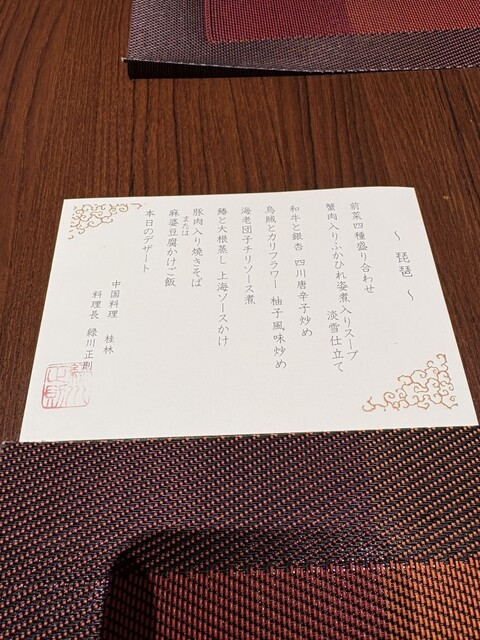 ～ 琵琶 ～
前菜四種盛り合わせ
蟹肉入りふかひれ姿煮入りスープ
淡雪仕立て
和牛と銀杏 四川唐辛子炒め
烏賊とカリフラワー 柚子風味炒め
海老団子チリソース煮
鰆と大根蒸し 上海ソースかけ
豚肉入り焼きそば
または
麻婆豆腐かけご飯
本日のデザート
中国料理 桂林
料理長 緑川正則